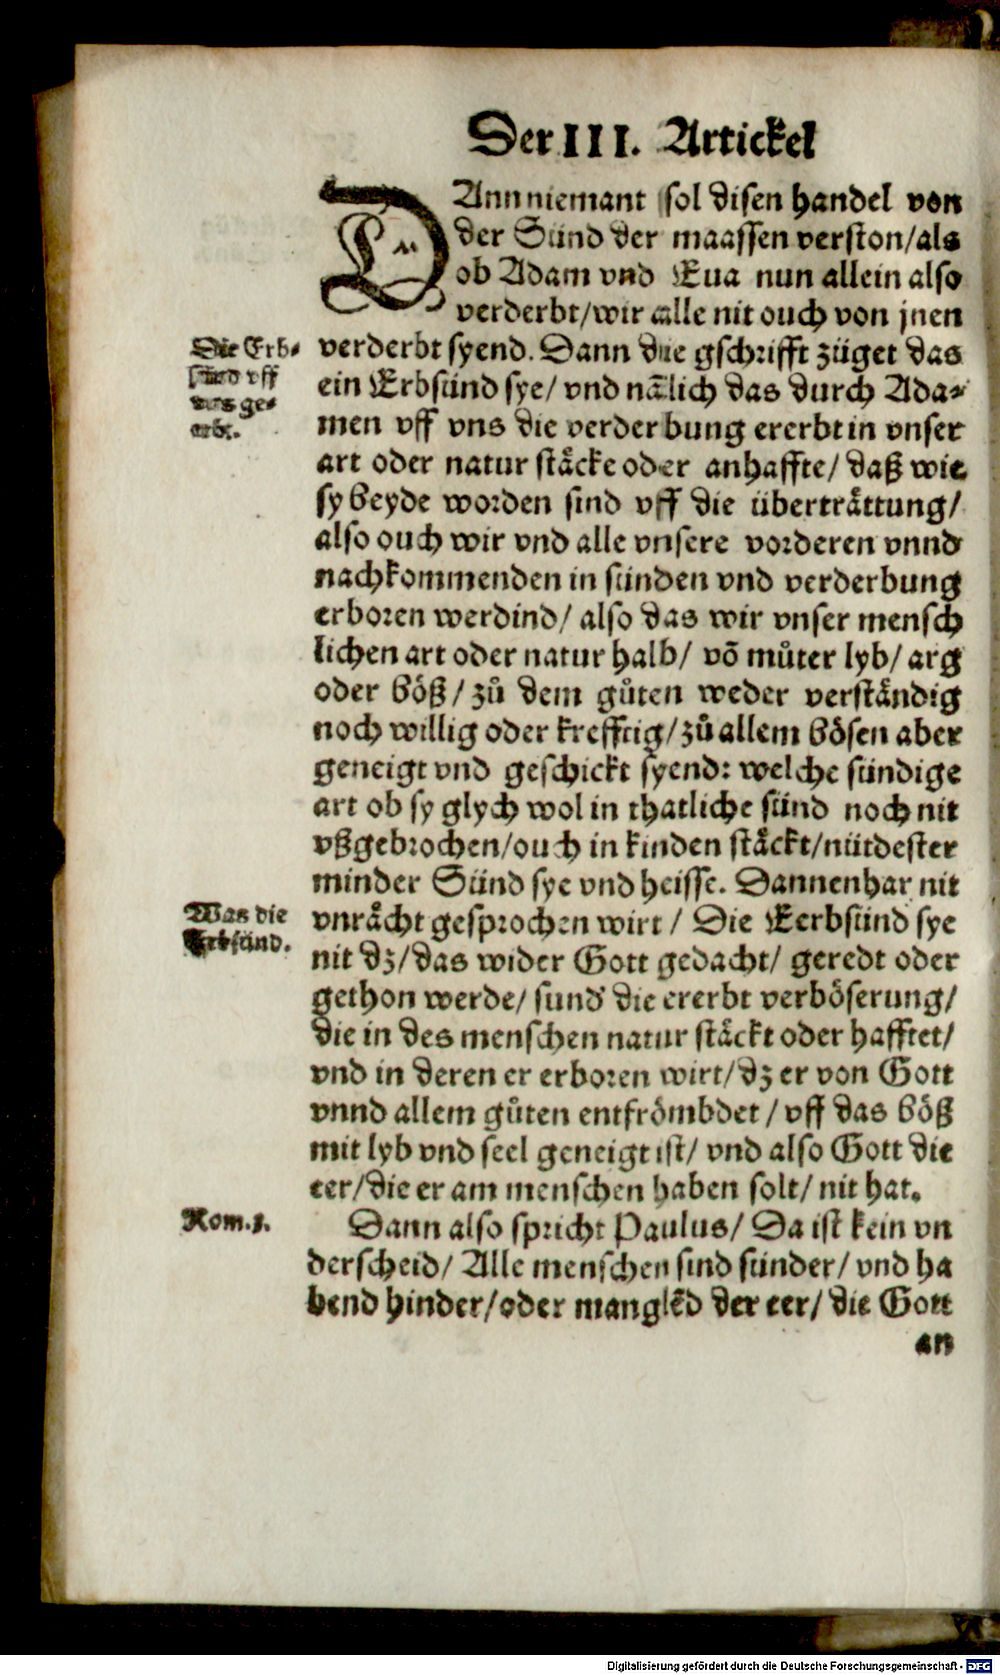 Der III. Artickel
DAnn niemant sol disen handel von
der Sünd der maassen verston/als
ob Adam vnd Eua nun allein also
verderbt/wir alle nit ouch von jnen
Die Erb-
sünd vff
vns ge-
erbt.
verderbt syend. Dann die gschrifft züget das
ein Erbsünd sye/ vnd nãlich das durch Ada-
men vff vns die verderbung ererbt in vnser
art oder natur stäcke oder anhaffte/ daß wie
sy beyde worden sind vff die überträttung/
also ouch wir vnd alle vnsere vorderen vnnd
nachkommenden in sünden vnd verderbung
erboren werdind/ also das wir vnser mensch
lichen art oder natur halb/ võ můter lyb/ arg
oder böß/ zů dem gůten weder verständig
noch willig oder krefftig/zů allem bösen aber
geneigt vnd geschickt syend: welche sündige
art ob sy glych wol in thatliche sünd noch nit
vßgebrochen/ouch in kinden stäckt/nütdester
minder Sünd sye vnd heisse. Dannenhar nit
Was die
Erbsünd.
vnrächt gesprochen wirt/ Die Eerbsünd sye
nit dz/das wider Gott gedacht/ geredt oder
gethon werde/ sund' die ererbt verböserung/
die in des menschen natur stäckt oder hafftet/
vnd in deren er erboren wirt/dz er von Gott
vnnd allem gůten entfrömbdet/ vff das böß
mit lyb vnd seel geneigt ist/ vnd also Gott die
eer/die er am menschen haben solt/ nit hat.
Rom.3.
Dann also spricht Paulus/ Da ist kein vn
derscheid/ Alle menschen sind sünder/ vnd ha
bend hinder/oder manglẽd der eer/ die Gott
an
Digitalisierung gefördert durch die Deutsche Forschungsgemeinschaft - DFG